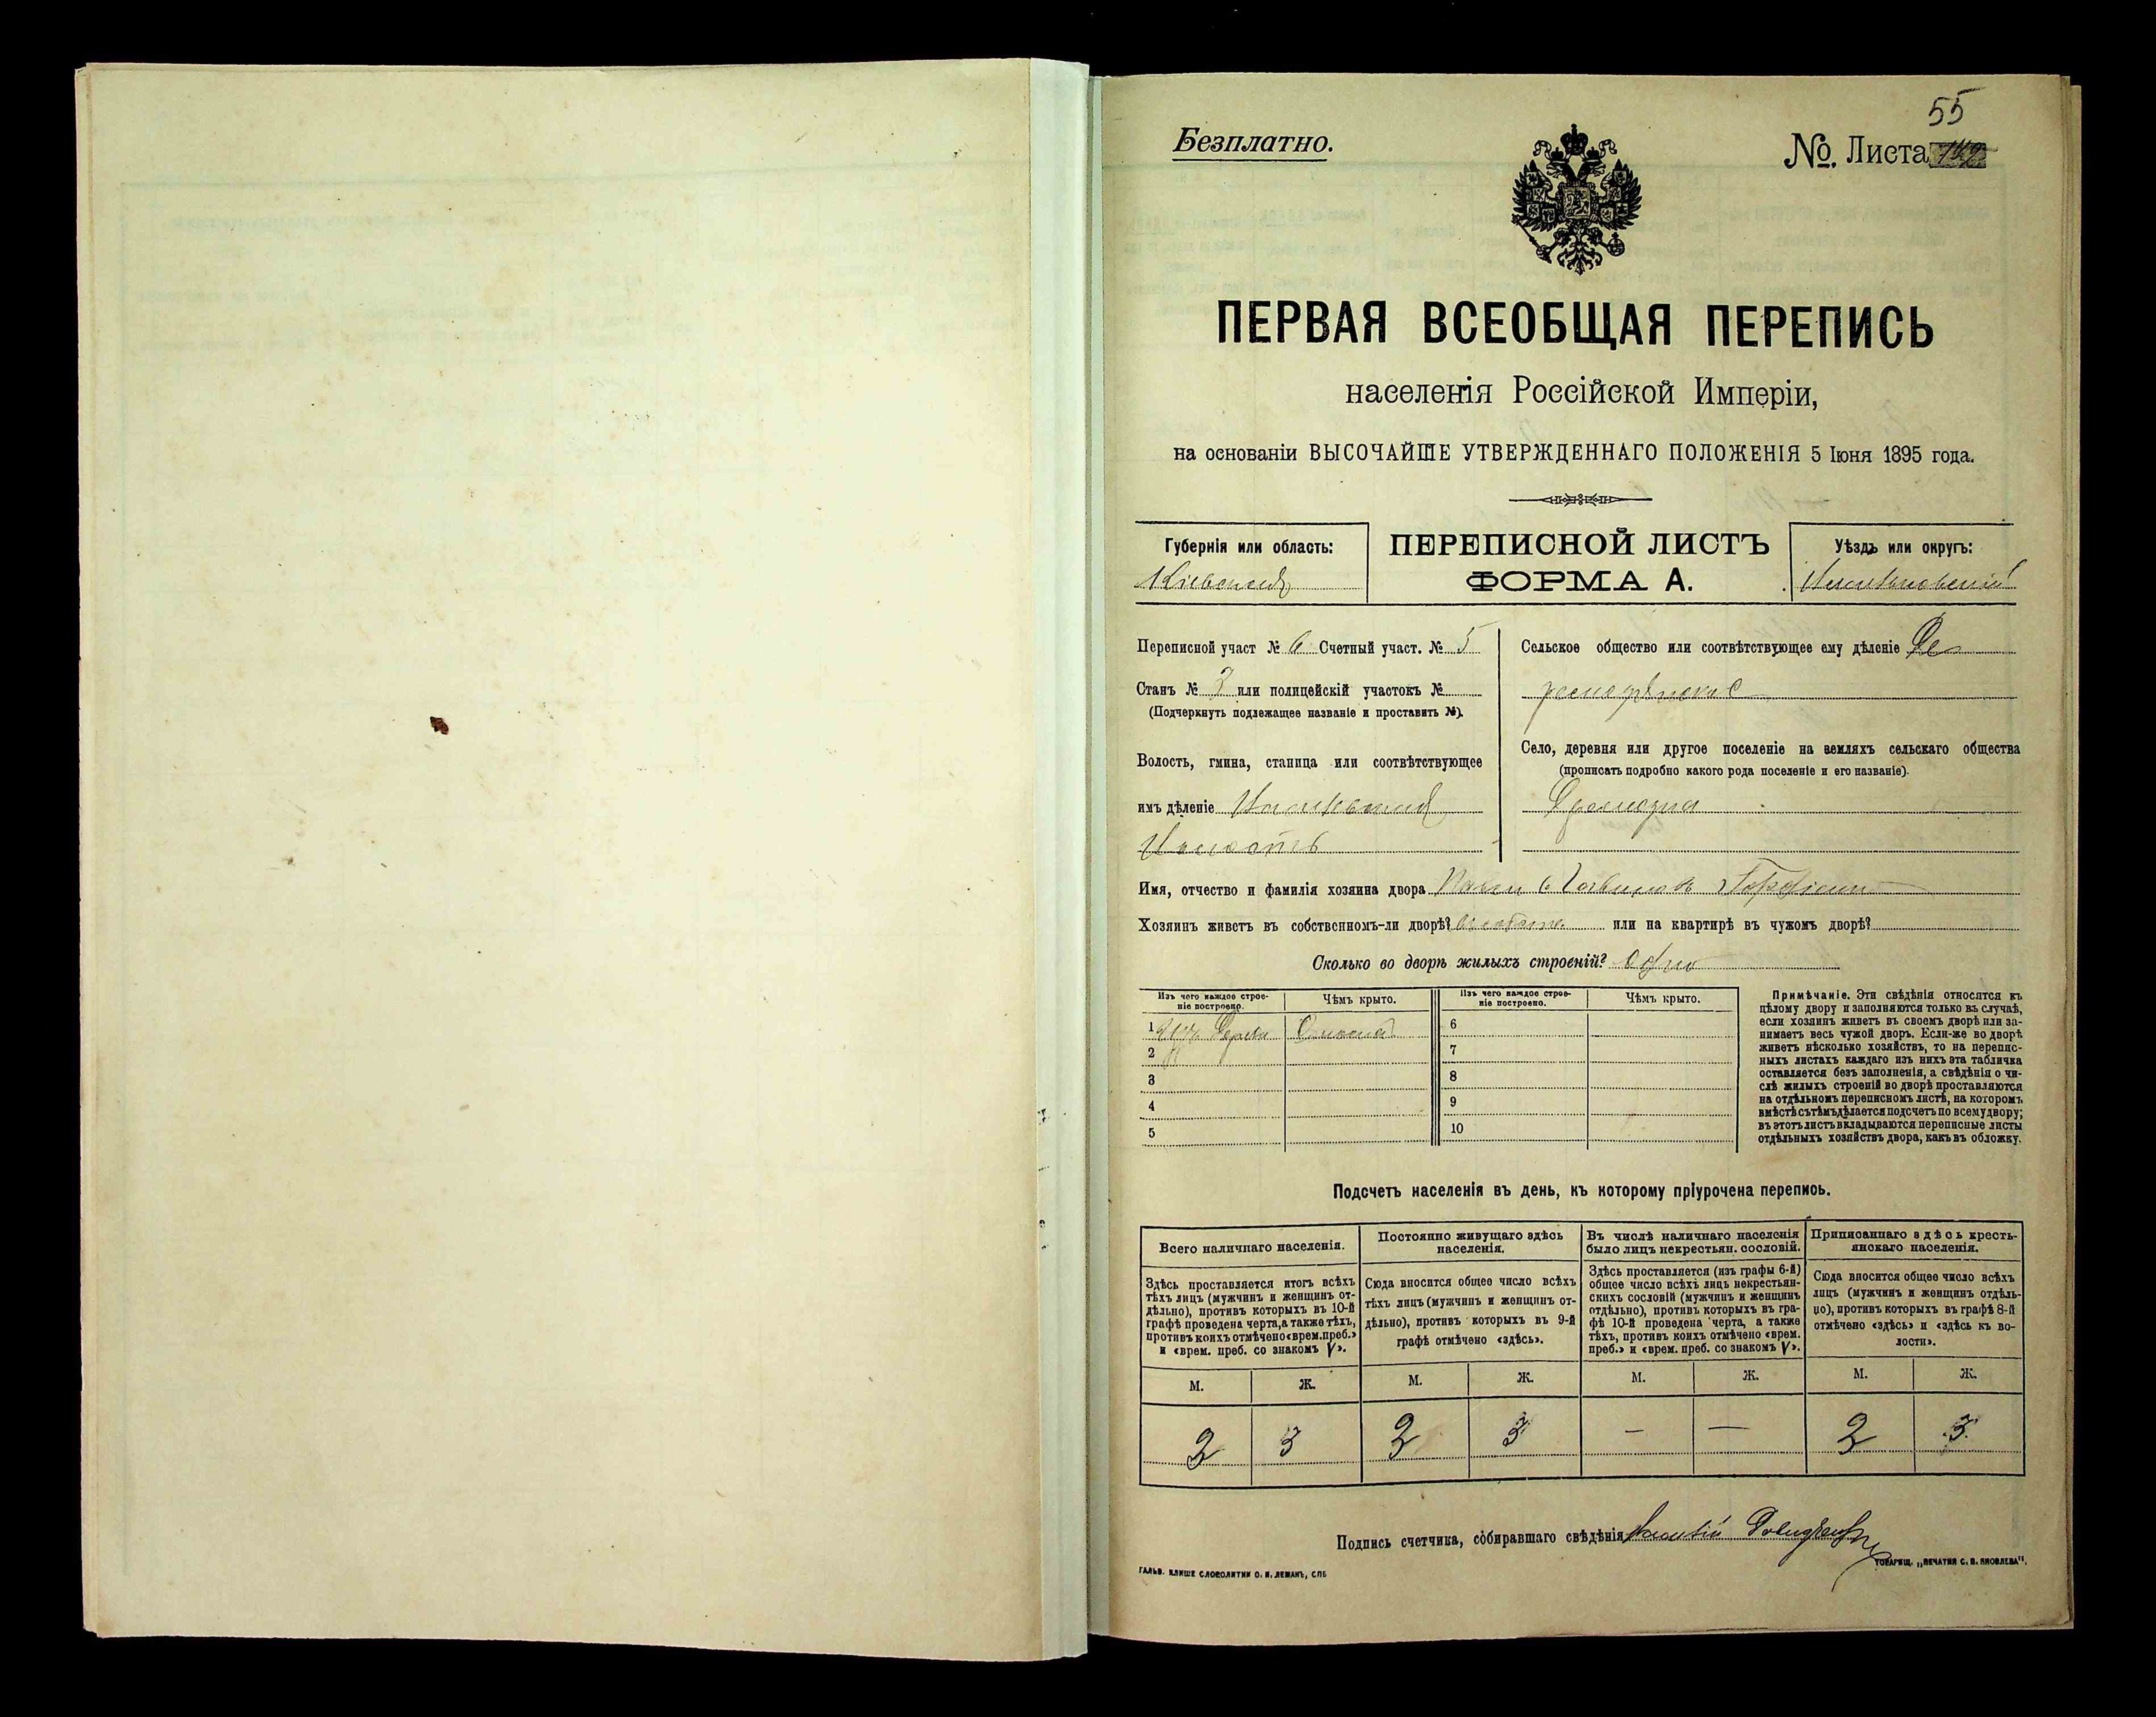 55
Безплатно.
№. Листа
ПЕРВАЯ ВСЕОБЩАЯ ПЕРЕПИСЬ
населенія Россійской Имперіи,
на основаніи ВЫСОЧАЙШЕ УТВЕРЖДЕННАГО ПОЛОЖЕНІЯ 5 Іюня 1895 года.
Губернія или область:
Кіевская
ПЕРЕПИСНОЙ ЛИСТЪ
ФОРМА А.
Уѣздъ или округъ:
Переписной участ № 6 Счетный участ. № 5
Станъ № 2 или полицейскій участокъ №
(Подчеркнуть подлежащее названіе и проставить №).
Волость, гмина, станица или соотвѣтствующее
имъ дѣленіе
Волость
Сельское общество или соотвѣтствующее ему дѣленіе
Село, деревня или другое поселеніе на земляхъ сельскаго общества
(прописать подробно какого рода поселеніе и его названіе).
Имя, отчество и фамилія хозяина двора
Хозяинъ живетъ въ собственномъ-ли дворѣ? или на квартирѣ въ чужомъ дворѣ?
Сколько во дворѣ жилыхъ строеній? Одно
Изъ чего каждое строе-
ніе построено.
Чѣмъ крыто.
Изъ чего каждое строе-
ніе построено.
Чѣмъ крыто.
1 изъ дерева
2
3
4
5
6
7
8
9
10
Примѣчаніе. Эти свѣдѣнія относятся къ
цѣлому двору и заполняются только въ случаѣ,
если хозяинъ живетъ въ своемъ дворѣ или за-
нимаетъ весь чужой дворъ. Если-же во дворѣ
живетъ нѣсколько хозяйствъ, то на перепис-
ныхъ листахъ каждаго изъ нихъ эта табличка
оставляется безъ заполненія, а свѣдѣнія о чи-
слѣ жилыхъ строеній во дворѣ проставляются
на отдѣльномъ переписномъ листѣ, на которомъ
вмѣстѣ съ тѣмъ дѣлается подсчетъ по всему двору;
въ этотъ листъ вкладываются переписные листы
отдѣльныхъ хозяйствъ двора, какъ въ обложку.
Подсчетъ населенія въ день, къ которому пріурочена перепись.
Всего наличнаго населенія.
Постоянно живущаго здѣсь
населенія.
Въ числѣ наличнаго населенія
было лицъ некрестьян. сословій.
Приписаннаго здѣсь кресть-
янскаго населенія.
Здѣсь проставляется итогъ всѣхъ
тѣхъ лицъ (мужчинъ и женщинъ от-
дѣльно), противъ которыхъ въ 10-й
графѣ проведена черта, а также тѣхъ,
противъ коихъ отмѣчено «врем. преб.»
и «врем. преб. со знакомъ V».
Сюда вносится общее число всѣхъ
тѣхъ лицъ (мужчинъ и женщинъ от-
дѣльно), противъ которыхъ въ 9-й
графѣ отмѣчено «здѣсь».
Здѣсь проставляется (изъ графы 6-й)
общее число всѣхъ лицъ некрестьян-
скихъ сословій (мужчинъ и женщинъ
отдѣльно), противъ которыхъ въ гра-
фѣ 10-й проведена черта, а также
тѣхъ, противъ коихъ отмѣчено «врем.
преб.» и «врем. преб. со знакомъ V».
Сюда вносится общее число всѣхъ
лицъ (мужчинъ и женщинъ отдѣль-
но), противъ которыхъ въ графѣ 8-й
отмѣчено «здѣсь» и «здѣсь къ во-
лости».
М. Ж. М. Ж. М. Ж. М. Ж.
2 3 2 3 — — 2 3
Подпись счетчика, собиравшаго свѣдѣнія
ГАЛЬВ. КЛИШЕ СЛОВОЛИТНИ О. И. ЛЕМАНЪ, СПБ
ТОВАРИЩ. „ПЕЧАТНЯ С. П. ЯКОВЛЕВА".